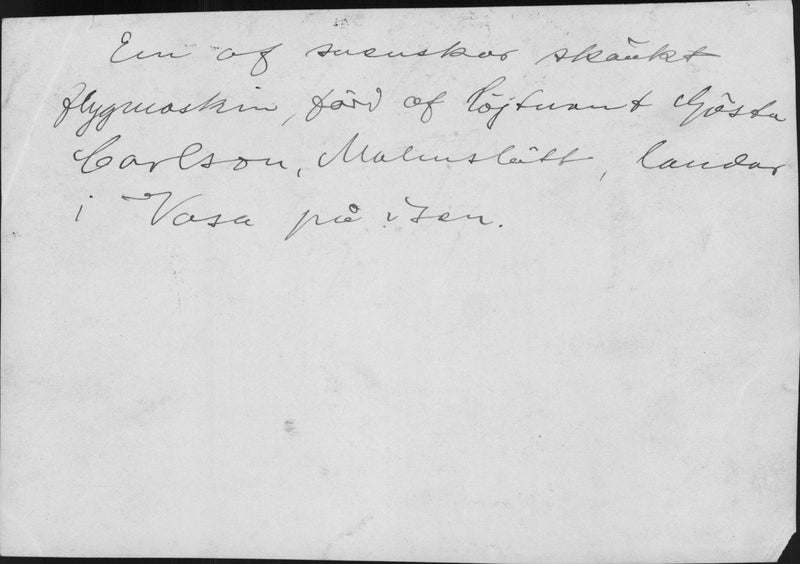 En af svenskar skänkt
flygmaskin, förd af löjtnant Gösta
Carlson, Malmslätt, landar
i Vasa på isen.